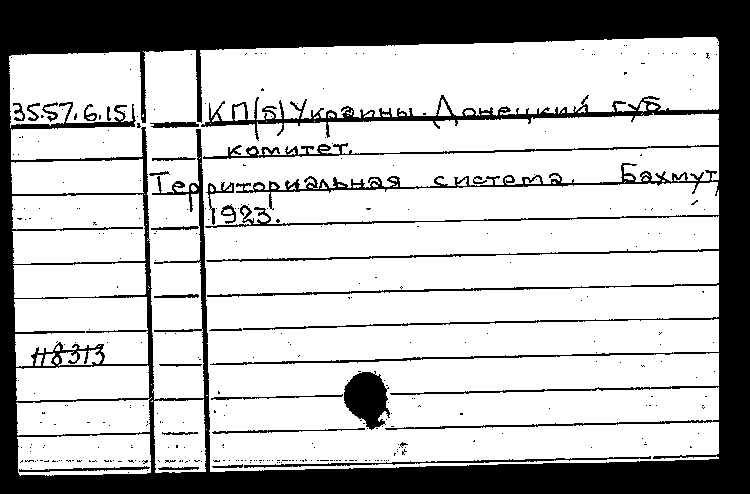 35.57.6.151 КП(б) Украины. Донецкий губ.
комитет.
Территориальная система. Бахмут,
1923.
118313